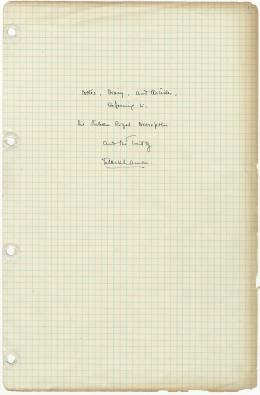 Notes, Diary, and Articles,
Referring to
the Theban Royal Necropolis
and the Tomb of
Tutankhamen.